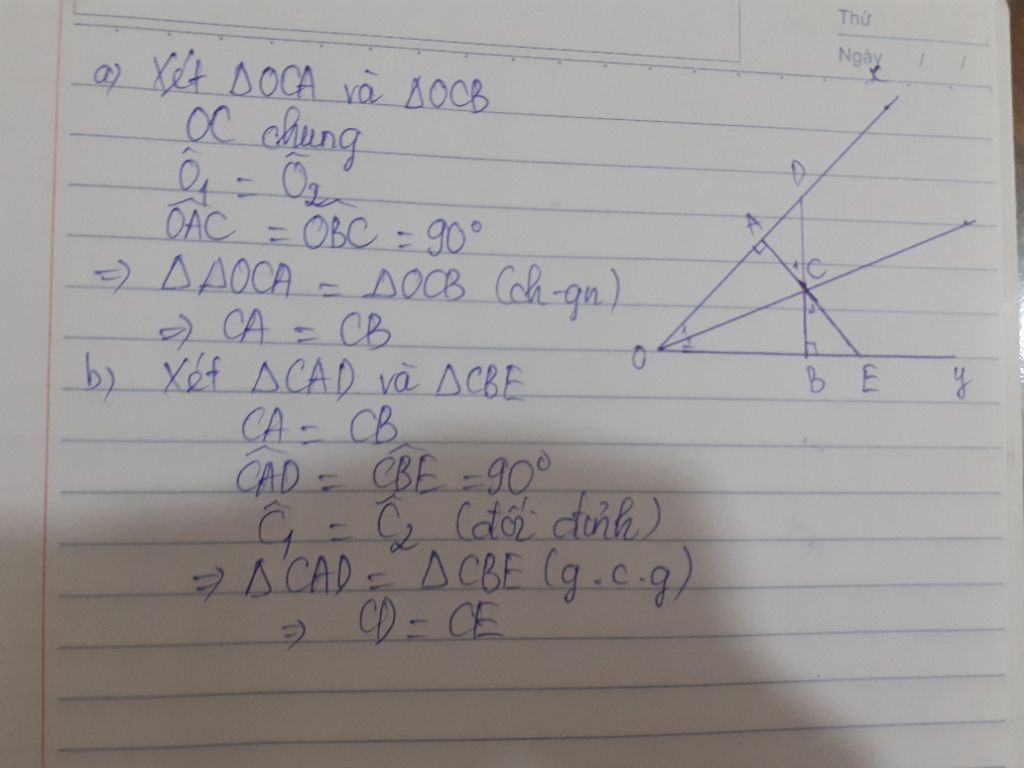 Thứ
Ngày / /
a) Xét ΔOCA và ΔOCB
OC chung
Ô₁ = Ô₂
\widehat{OAC} = \widehat{OBC} = 90°
=> Δ ΔOCA = ΔOCB (ch-gn)
=> CA = CB
b) Xét ΔCAD và ΔCBE
CA = CB
\widehat{CAD} = \widehat{CBE} = 90°
Ĉ₁ = Ĉ₂ (đối đỉnh)
=> ΔCAD = ΔCBE (g.c.g)
=> CD = CE
x
D
A
1 C
2
1
O 2
B E y